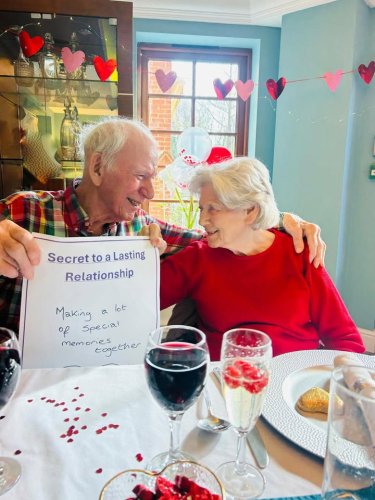 Secret to a Lasting
Relationship
Making a lot
of special
memories
together